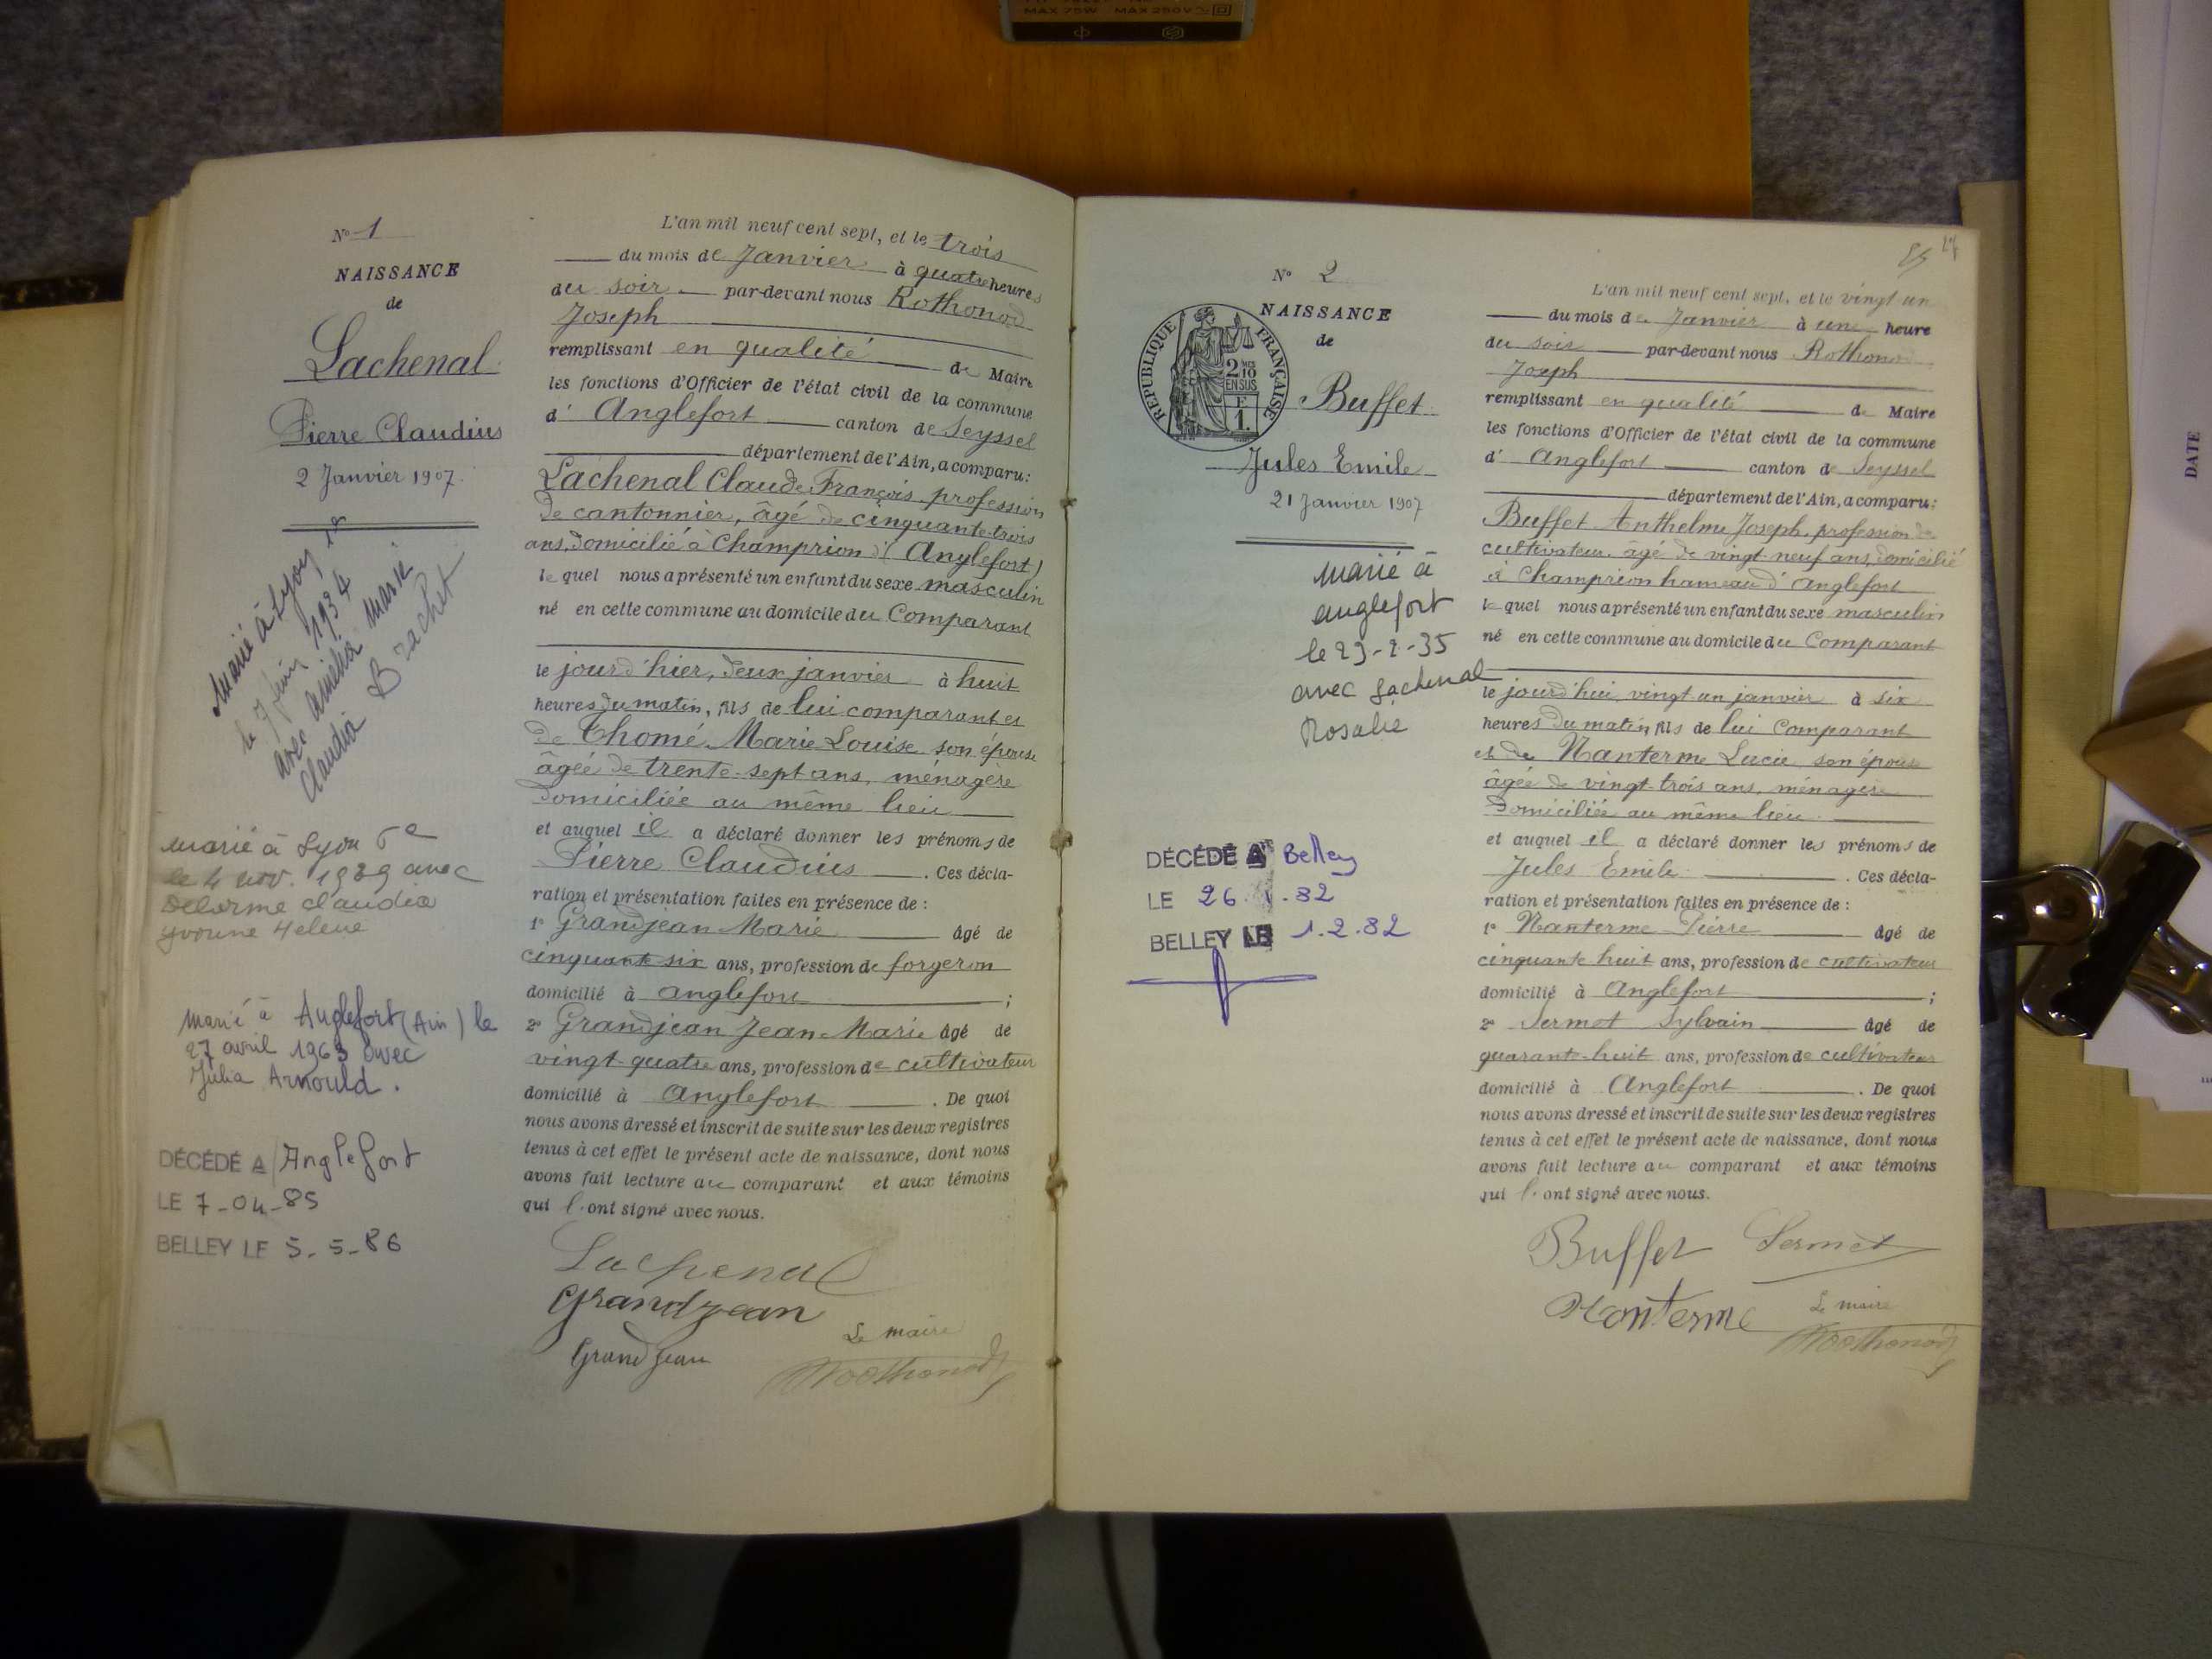 MAX 75W MAX 250V
Nº 1
NAISSANCE
de
Lachenal
Pierre Claudius
2 Janvier 1907.
Marié à Lyon
le 7 juin 1934
avec Amélia Marie
Claudia Brachet
Marié à Lyon 6e
le 4 nov. 1939 avec
Delorme Claudia
Yvonne Helene
Marié à Anglefort (Ain) le
27 avril 1963 avec
Julia Arnould.
DÉCÉDÉ A Anglefort
LE 7-04-85
BELLEY LE 5-5-86
L'an mil neuf cent sept, et le trois
du mois de Janvier à quatre heures
du soir par-devant nous Rothonod
Joseph
remplissant en qualité de Maire
les fonctions d'Officier de l'état civil de la commune
d' Anglefort canton de Seyssel
département de l'Ain, a comparu:
Lachenal Claude François, profession
de cantonnier, âgé de cinquante-trois
ans, domicilié à Champrion d' (Anglefort)
lequel nous a présenté un enfant du sexe masculin
né en cette commune au domicile du Comparant
le jourd'hier, deux janvier à huit
heures du matin, fils de lui comparant et
de Thomé Marie Louise son épouse
âgée de trente-sept ans, ménagère
domiciliée au même lieu
et auquel il a déclaré donner les prénoms de
Pierre Claudius . Ces décla-
ration et présentation faites en présence de :
1º Grandjean Marie âgé de
cinquante six ans, profession de forgeron
domicilié à Anglefort ;
2º Grandjean Jean-Marie âgé de
vingt-quatre ans, profession de cultivateur
domicilié à Anglefort . De quoi
nous avons dressé et inscrit de suite sur les deux registres
tenus à cet effet le présent acte de naissance, dont nous
avons fait lecture au comparant et aux témoins
qui l'ont signé avec nous.
Lachenal
Grandjean
Grandjean
Le maire
Rothonod
Nº 2
NAISSANCE
de
RÉPUBLIQUE FRANÇAISE
2 10
EN SUS
F
1.
Buffet
Jules Emile
21 Janvier 1907
Marié à
Anglefort
le 23-2-35
avec Lachenal
Rosalie
DÉCÉDÉ A Belley
LE 26.1.82
BELLEY LE 1.2.82
L'an mil neuf cent sept, et le vingt un
du mois de Janvier à une heure
du soir par-devant nous Rothonod
Joseph
remplissant en qualité de Maire
les fonctions d'Officier de l'état civil de la commune
d' Anglefort canton de Seyssel
département de l'Ain, a comparu:
Buffet Anthelme Joseph, profession de
cultivateur, âgé de vingt-neuf ans, domicilié
à Champrion hameau d'Anglefort
lequel nous a présenté un enfant du sexe masculin
né en cette commune au domicile du Comparant
le jourd'hui vingt un janvier à six
heures du matin, fils de lui Comparant
et de Nanterme Lucie, son épouse
âgée de vingt-trois ans, ménagère
domiciliée au même lieu
et auquel il a déclaré donner les prénoms de
Jules Emile . Ces décla-
ration et présentation faites en présence de :
1º Nanterme Pierre âgé de
cinquante huit ans, profession de cultivateur
domicilié à Anglefort ;
2º Sermet Sylvain âgé de
quarante-huit ans, profession de cultivateur
domicilié à Anglefort . De quoi
nous avons dressé et inscrit de suite sur les deux registres
tenus à cet effet le présent acte de naissance, dont nous
avons fait lecture au comparant et aux témoins
qui l'ont signé avec nous.
Buffet Sermet
Nanterme
Le maire
Rothonod
DATE